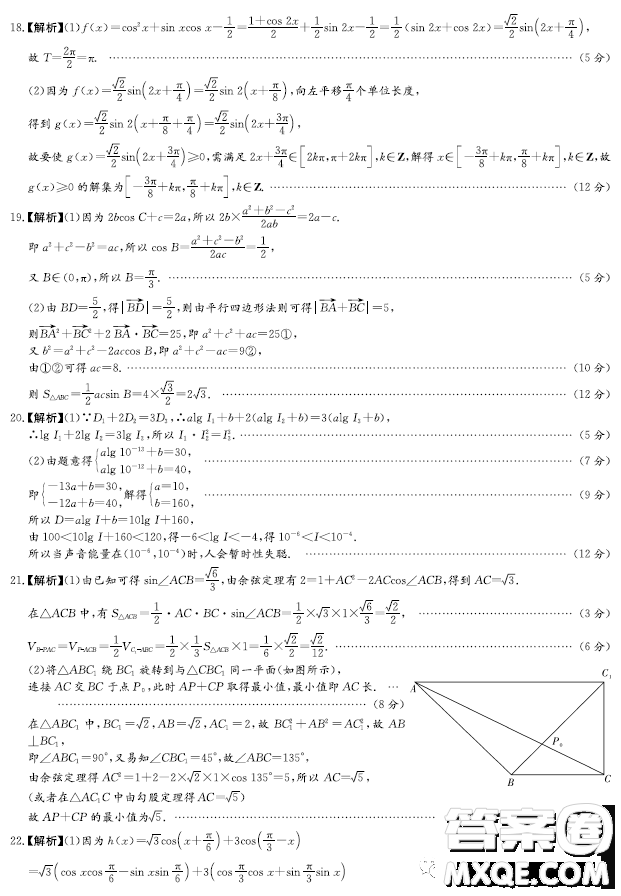 18.【解析】(1)f(x)=cos²x+sin xcos x-1/2=(1+cos 2x)/2+1/2 sin 2x-1/2=1/2(sin 2x+cos 2x)=√2/2 sin(2x+π/4),
故 T=2π/2=π. ……(5 分)
(2)因为 f(x)=√2/2 sin(2x+π/4)=√2/2 sin 2(x+π/8),向左平移π/4个单位长度,
得到 g(x)=√2/2 sin 2(x+π/8+π/4)=√2/2 sin(2x+3π/4),
故要使 g(x)=√2/2 sin(2x+3π/4)≥0,需满足 2x+3π/4∈[2kπ,π+2kπ],k∈Z,解得 x∈[-3π/8+kπ,π/8+kπ],k∈Z,故
g(x)≥0 的解集为[-3π/8+kπ,π/8+kπ],k∈Z. ……(12 分)
19.【解析】(1)因为 2bcos C+c=2a,所以 2b×(a²+b²-c²)/2ab=2a-c.
即 a²+c²-b²=ac,所以 cos B=(a²+c²-b²)/2ac=1/2,
又 B∈(0,π),所以 B=π/3. ……(5 分)
(2)由 BD=5/2,得|BD→|=5/2,则由平行四边形法则可得|BA→+BC→|=5,
则BA→²+BC→²+2 BA→·BC→=25,即 a²+c²+ac=25①,
又 b²=a²+c²-2accos B,即 a²+c²-ac=9②,
由①②可得 ac=8. ……(10 分)
则 S△ABC=1/2 acsin B=4×√3/2=2√3. ……(12 分)
20.【解析】(1)∵D₁+2D₂=3D₃,∴alg I₁+b+2(alg I₂+b)=3(alg I₃+b),
∴lg I₁+2lg I₂=3lg I₃,所以 I₁·I₂²=I₃³. ……(5 分)
(2)由题意得{alg 10⁻¹³+b=30, alg 10⁻¹²+b=40, ……(7 分)
即{-13a+b=30, -12a+b=40,解得{a=10, b=160, ……(9 分)
所以 D=alg I+b=10lg I+160,
由 100<10lg I+160<120,得-6<lg I<-4,得 10⁻⁶<I<10⁻⁴.
所以当声音能量在(10⁻⁶,10⁻⁴)时,人会暂时性失聪. ……(12 分)
21.【解析】(1)由已知可得 sin∠ACB=√6/3,由余弦定理有 2=1+AC²-2ACcos∠ACB,得到 AC=√3.
在△ACB 中,有 S△ACB=1/2·AC·BC·sin∠ACB=1/2×√3×1×√6/3=√2/2, ……(3 分)
V_{B-PAC}=V_{P-ACB}=1/2 V_{C₁-ABC}=1/2×1/3 S△ACB×1=1/6×√2/2=√2/12. ……(6 分)
(2)将△ABC₁ 绕 BC₁ 旋转到与△CBC₁ 同一平面(如图所示),
连接 AC 交 BC 于点 P₀,此时 AP+CP 取得最小值,最小值即 AC 长. …
……(8 分)
在△ABC₁ 中,BC₁=√2,AB=√2,AC₁=2,故 BC₁²+AB²=AC₁²,故 AB
⊥BC₁,
即∠ABC₁=90°,又易知∠CBC₁=45°,故∠ABC=135°,
由余弦定理得 AC²=1+2-2×√2×1×cos 135°=5,所以 AC=√5,
(或者在△AC₁C 中由勾股定理得 AC=√5)
故 AP+CP 的最小值为√5. ……
A
C₁
P₀
B
C
22.【解析】(1)因为 h(x)=√3cos(x+π/6)+3cos(π/3-x)
=√3(cos xcos π/6-sin xsin π/6)+3(cos π/3 cos x+sin π/3 sin x)
答案圈
MXQE.COM